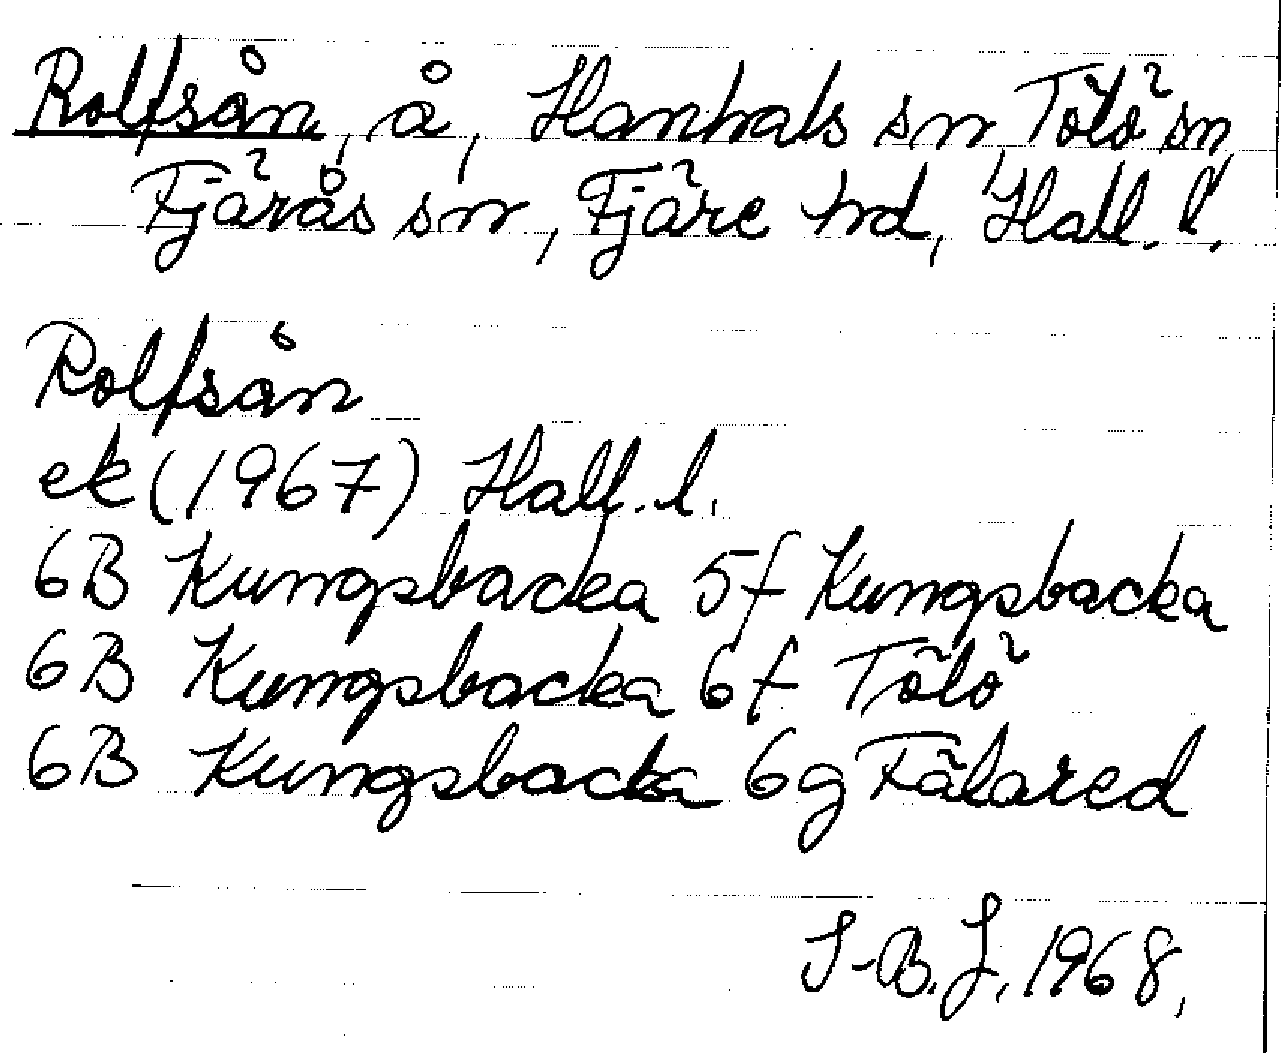 Rolfsån, å, Hanhals sn, Tölö sn,
Fjärås sn, Fjäre hd, Hall. l.
Rolfsån
ek (1967) Hall. l.
6B Kungsbacka 5f Kungsbacka
6B Kungsbacka 6f Tölö
6B Kungsbacka 6g Fälared
I-B. J. 1968.